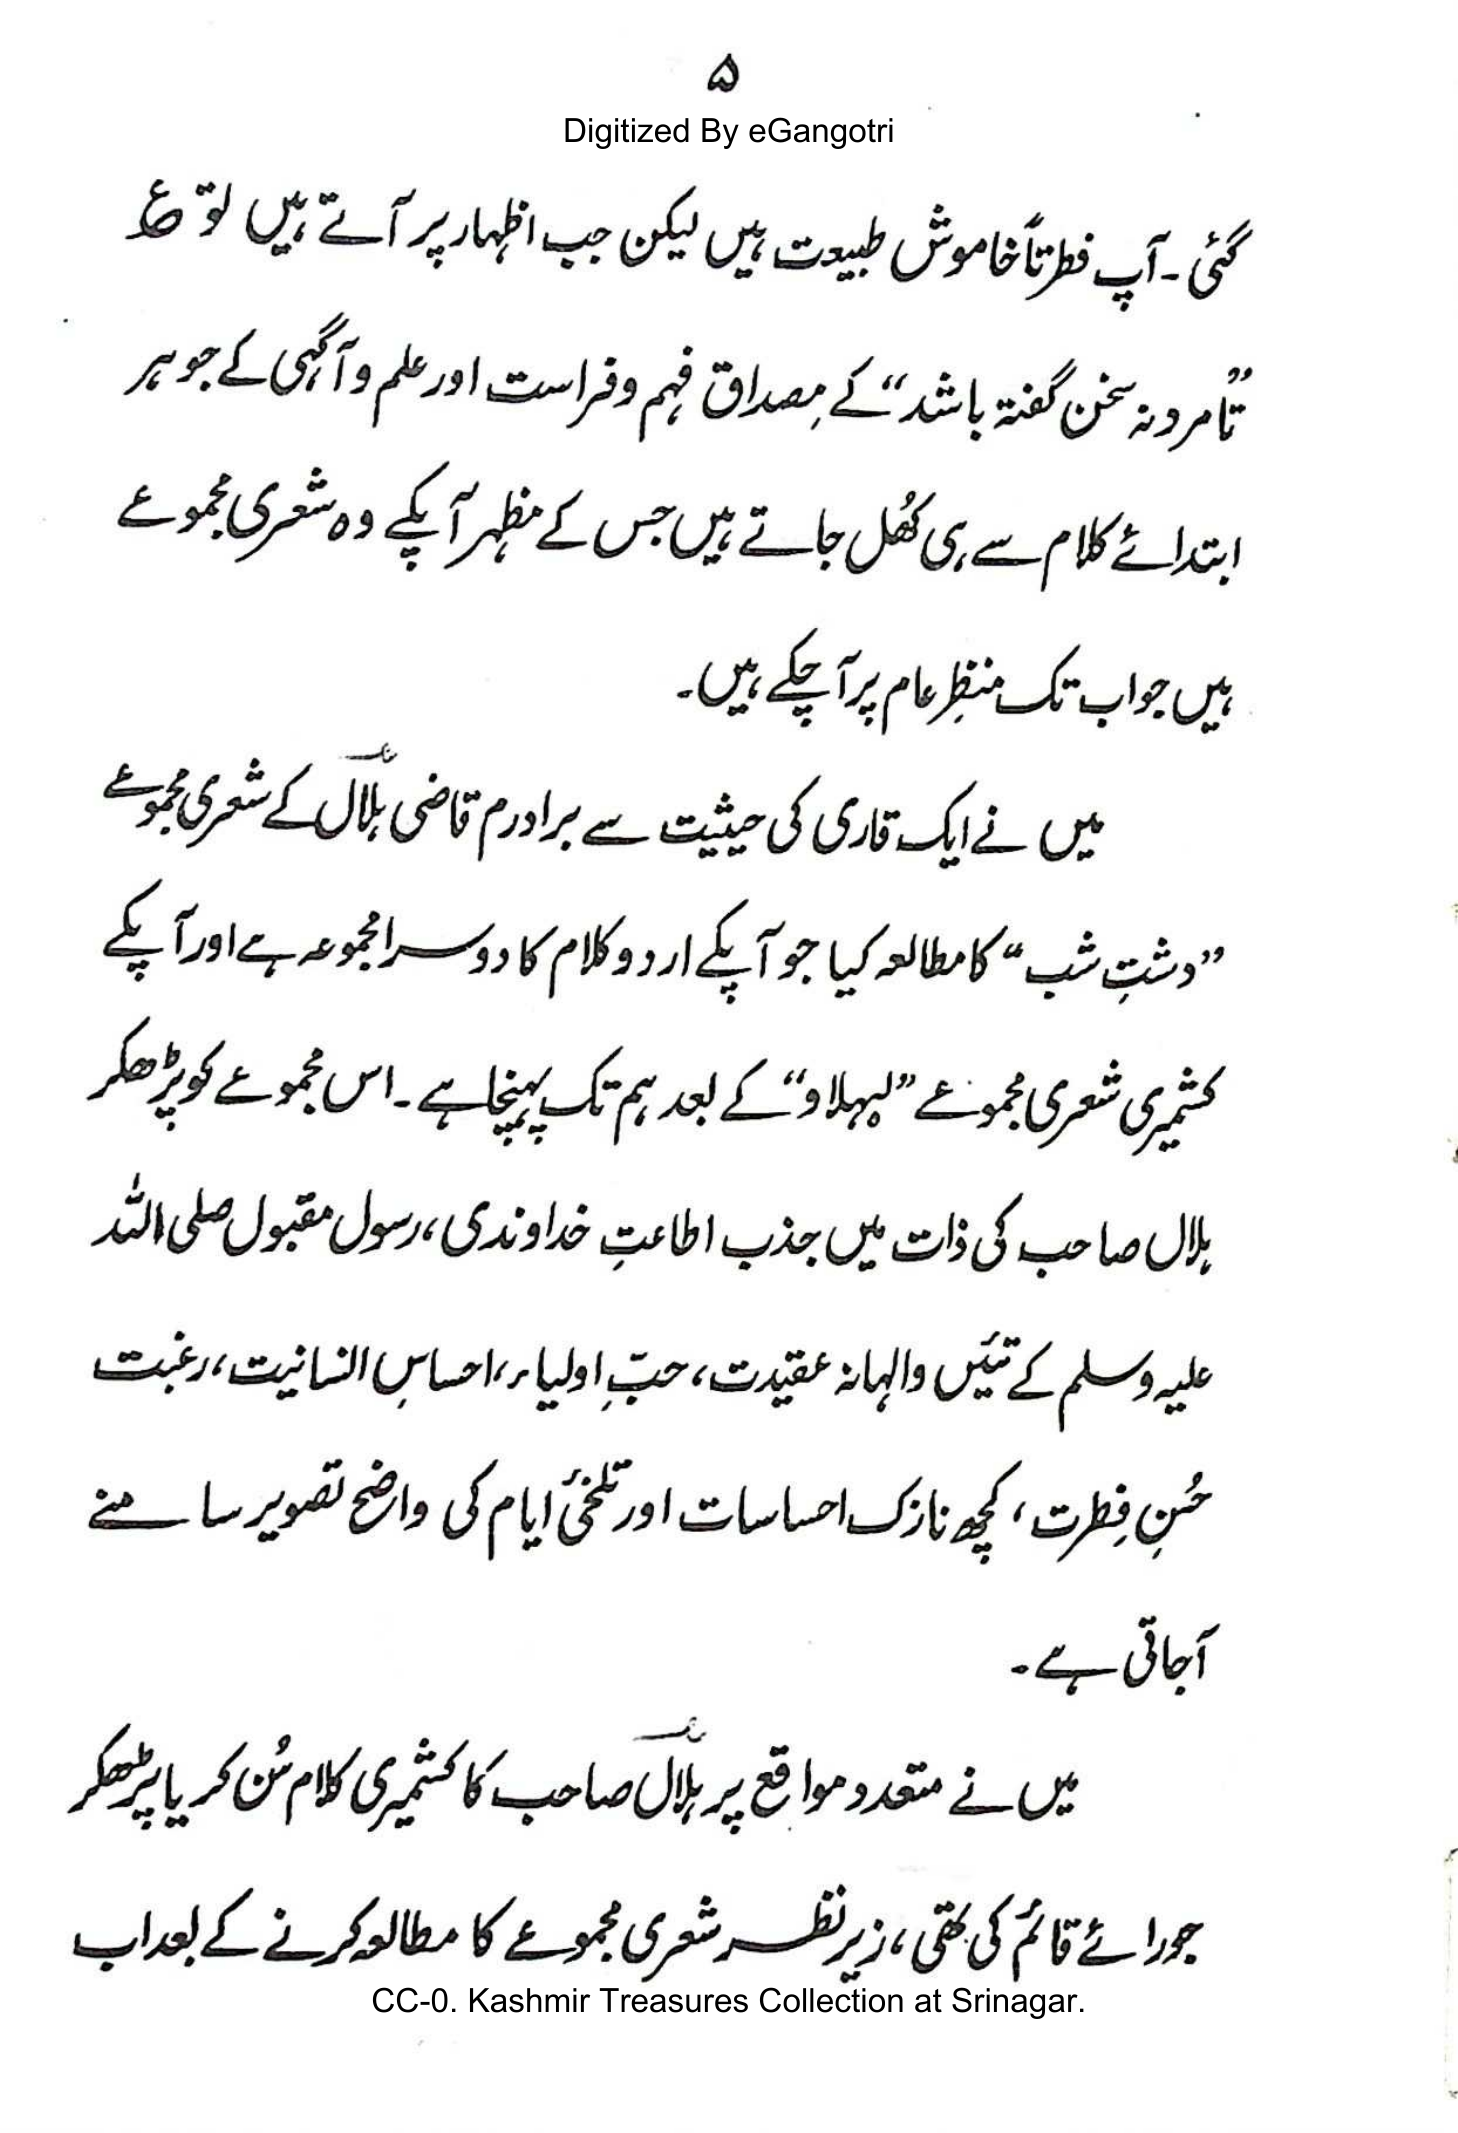 ۵
Digitized By eGangotri
گئی ۔ آپ فطرتاً خاموش طبیعت ہیں لیکن جب اظہار پر آتے ہیں تو ع
”تا مرد نہ سخن گفتہ باشد“ کے مِصداق فہم و فراست اور علم و آگہی کے جوہر
ابتدائے کلام سے ہی کھُل جاتے ہیں جس کے مظہر آپکے وہ شعری مجموعے
ہیں جو اب تک منظرِ عام پر آچکے ہیں۔
میں نے ایک قاری کی حیثیت سے برادرم قاضی ہلالؔ کے شعری مجموعے
”دشتِ شب“ کا مطالعہ کیا جو آپکے اردو کلام کا دوسرا مجموعہ ہے اور آپکے
کشمیری شعری مجموعے ”لہلاو“ کے بعد ہم تک پہنچا ہے ۔ اس مجموعے کو پڑھکر
ہلال صاحب کی ذات میں جذب اطاعتِ خداوندی، رسول مقبول صلی اللہ
علیہ وسلم کے تیئں والہانہ عقیدت، حبِّ اولیاء، احساسِ انسانیت، رغبت
حُسنِ فِطرت، کچھ نازک احساسات اور تلخیٔ ایام کی واضح تصویر سامنے
آجاتی ہے ۔
میں نے متعدد مواقع پر ہلالؔ صاحب کا کشمیری کلام سُن کر یا پڑھکر
جو رائے قائم کی تھی، زیر نظر شعری مجموعے کا مطالعہ کرنے کے بعد اب
CC-0. Kashmir Treasures Collection at Srinagar.